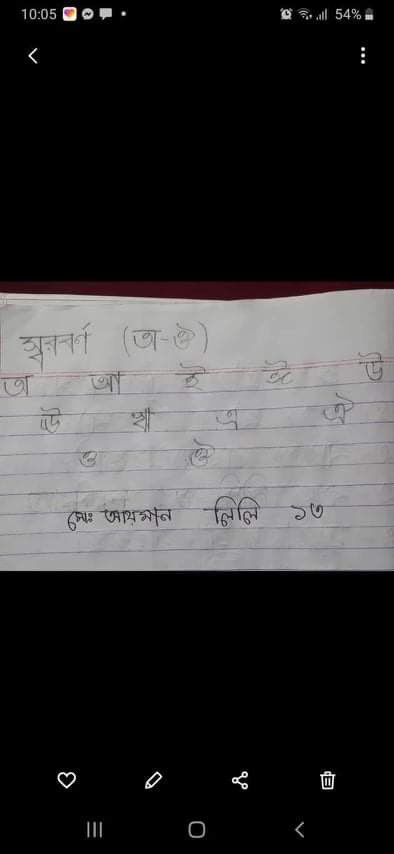 10:05 54%
স্বরবর্ণ (অ-ঔ)
অ আ ই ঈ উ
ঊ ঋ এ ঐ
ও ঔ
মোঃ আয়মান লিলি ১৩